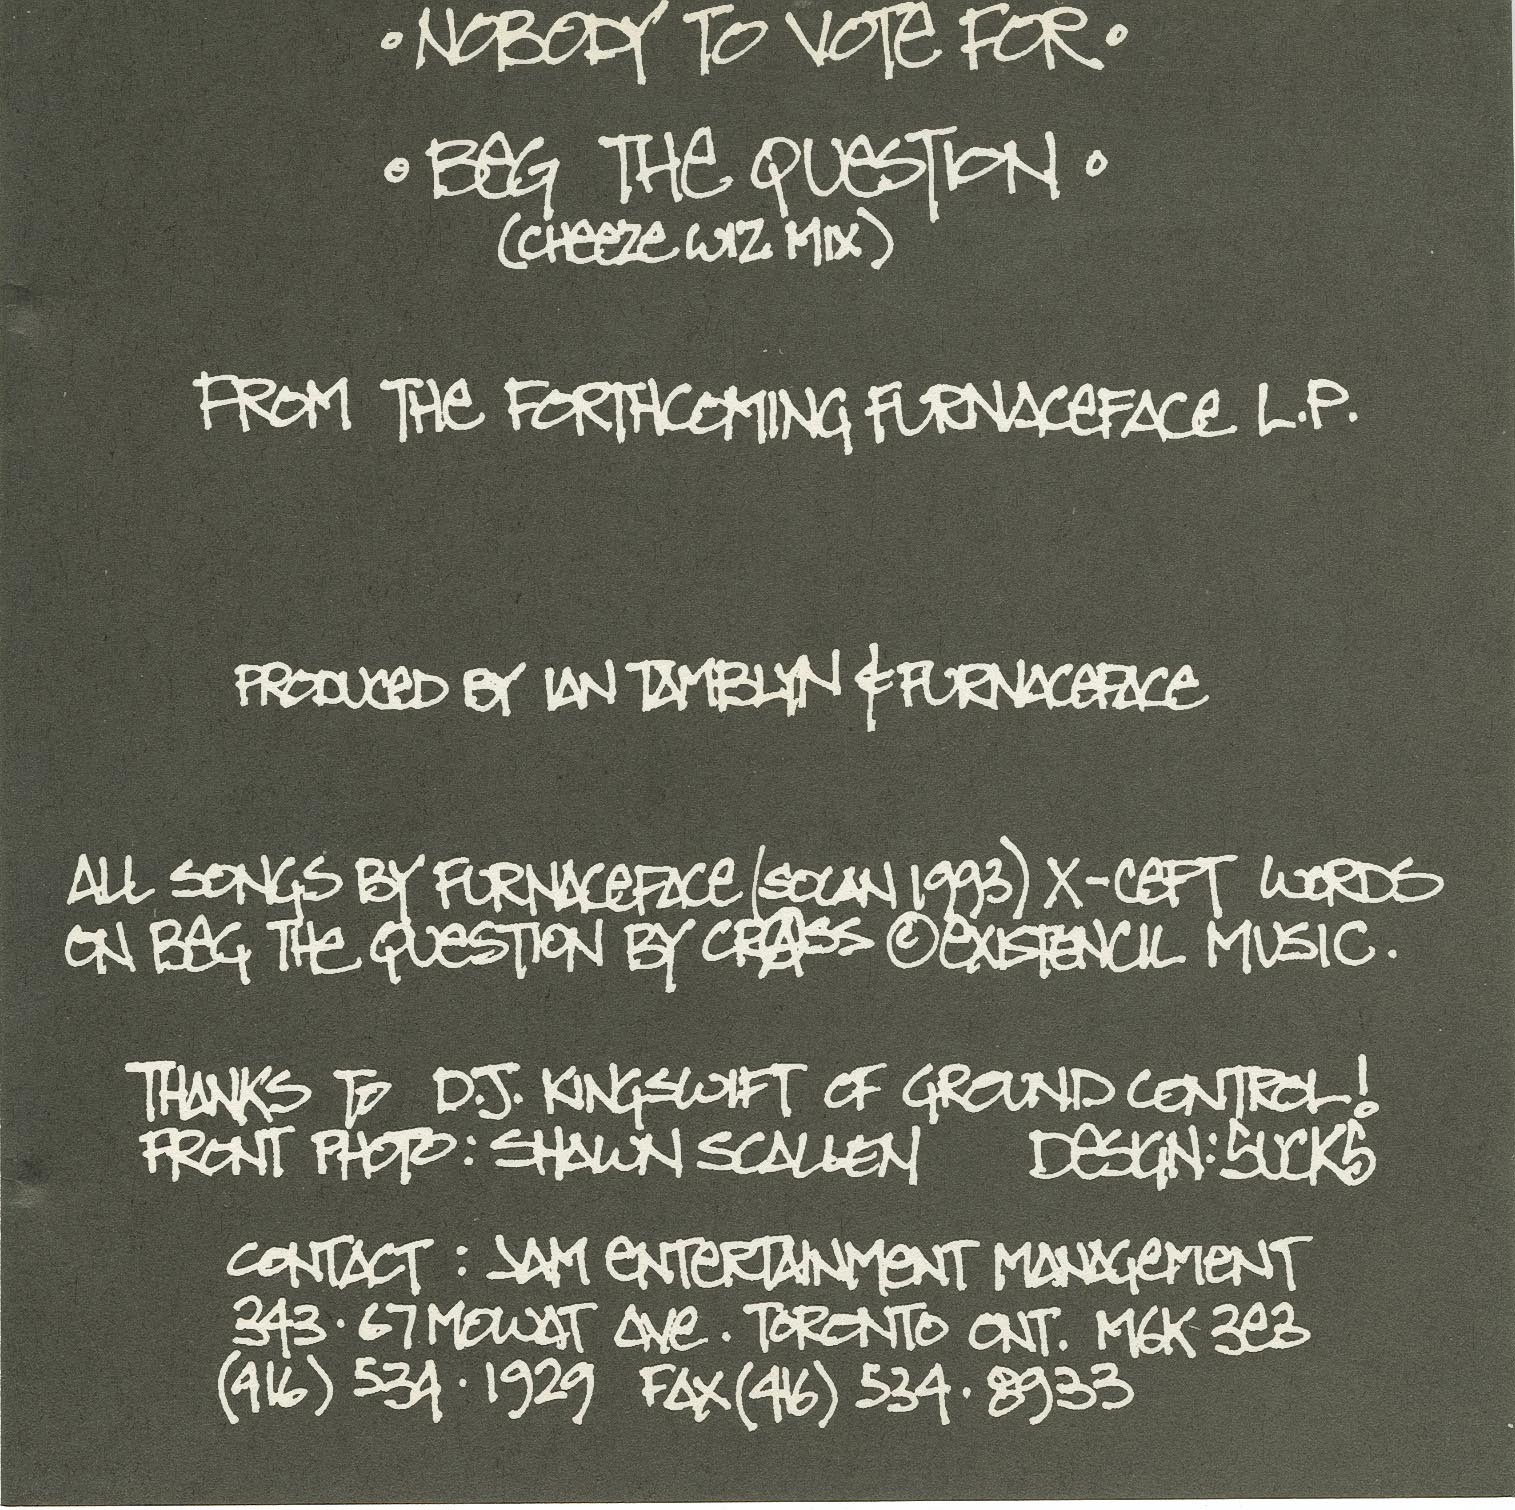 • NOBODY TO VOTE FOR •
• BEG THE QUESTION •
(CHEEZE WIZ MIX)
FROM THE FORTHCOMING FURNACEFACE L.P.
PRODUCED BY IAN TAMBLYN & FURNACEFACE
ALL SONGS BY FURNACEFACE (SOCAN 1993) X-CEPT WORDS
ON BEG THE QUESTION BY CRASS © EXISTENCIL MUSIC.
THANKS TO D.J. KINGSWIFT OF GROUND CONTROL!
FRONT PHOTO: SHAWN SCALLEN DESIGN: SUCKS
CONTACT: JAM ENTERTAINMENT MANAGEMENT
343 · 67 MOWAT AVE. TORONTO ONT. M6K 3E3
(416) 534 · 1929 FAX (416) 534 · 8933